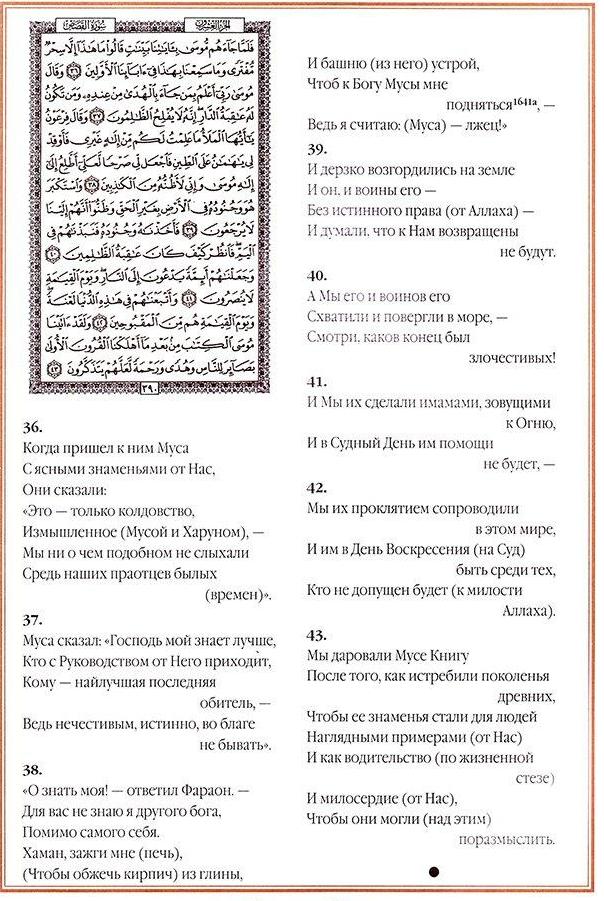 سورة القصص
الجزء العشرون
فَلَمَّا جَاءَهُم مُّوسَىٰ بِـَٔايَٰتِنَا بَيِّنَٰتٍ قَالُوا۟ مَا هَٰذَآ إِلَّا سِحْرٌ
مُّفْتَرًى وَمَا سَمِعْنَا بِهَٰذَا فِىٓ ءَابَآئِنَا ٱلْأَوَّلِينَ ٣٦ وَقَالَ
مُوسَىٰ رَبِّىٓ أَعْلَمُ بِمَن جَآءَ بِٱلْهُدَىٰ مِنْ عِندِهِۦ وَمَن تَكُونُ
لَهُۥ عَٰقِبَةُ ٱلدَّارِ إِنَّهُۥ لَا يُفْلِحُ ٱلظَّٰلِمُونَ ٣٧ وَقَالَ فِرْعَوْنُ
يَٰٓأَيُّهَا ٱلْمَلَأُ مَا عَلِمْتُ لَكُم مِّنْ إِلَٰهٍ غَيْرِى فَأَوْقِدْ
لِى يَٰهَٰمَٰنُ عَلَى ٱلطِّينِ فَٱجْعَل لِّى صَرْحًا لَّعَلِّىٓ أَطَّلِعُ إِلَىٰٓ
إِلَٰهِ مُوسَىٰ وَإِنِّى لَأَظُنُّهُۥ مِنَ ٱلْكَٰذِبِينَ ٣٨ وَٱسْتَكْبَرَ
هُوَ وَجُنُودُهُۥ فِى ٱلْأَرْضِ بِغَيْرِ ٱلْحَقِّ وَظَنُّوٓا۟ أَنَّهُمْ إِلَيْنَا
لَا يُرْجَعُونَ ٣٩ فَأَخَذْنَٰهُ وَجُنُودَهُۥ فَنَبَذْنَٰهُمْ فِى
ٱلْيَمِّ فَٱنظُرْ كَيْفَ كَانَ عَٰقِبَةُ ٱلظَّٰلِمِينَ ٤٠
وَجَعَلْنَٰهُمْ أَئِمَّةً يَدْعُونَ إِلَى ٱلنَّارِ وَيَوْمَ ٱلْقِيَٰمَةِ
لَا يُنصَرُونَ ٤١ وَأَتْبَعْنَٰهُمْ فِى هَٰذِهِ ٱلدُّنْيَا لَعْنَةً
وَيَوْمَ ٱلْقِيَٰمَةِ هُم مِّنَ ٱلْمَقْبُوحِينَ ٤٢ وَلَقَدْ ءَاتَيْنَا
مُوسَى ٱلْكِتَٰبَ مِنۢ بَعْدِ مَآ أَهْلَكْنَا ٱلْقُرُونَ ٱلْأُولَىٰ
بَصَآئِرَ لِلنَّاسِ وَهُدًى وَرَحْمَةً لَّعَلَّهُمْ يَتَذَكَّرُونَ ٤٣
٣٩٠
36.
Когда пришел к ним Муса
С ясными знаменьями от Нас,
Они сказали:
«Это — только колдовство,
Измышленное (Мусой и Харуном), —
Мы ни о чем подобном не слыхали
Средь наших праотцев былых
(времен)».
37.
Муса сказал: «Господь мой знает лучше,
Кто с Руководством от Него приходит,
Кому — найлучшая последняя
обитель, —
Ведь нечестивым, истинно, во благе
не бывать».
38.
«О знать моя! — ответил Фараон. —
Для вас не знаю я другого бога,
Помимо самого себя.
Хаман, зажги мне (печь),
(Чтобы обжечь кирпич) из глины,
И башню (из него) устрой,
Чтоб к Богу Мусы мне
подняться¹⁶⁴¹ᵃ, —
Ведь я считаю: (Муса) — лжец!»
39.
И дерзко возгордились на земле
И он, и воины его —
Без истинного права (от Аллаха) —
И думали, что к Нам возвращены
не будут.
40.
А Мы его и воинов его
Схватили и повергли в море, —
Смотри, каков конец был
злочестивых!
41.
И Мы их сделали имамами, зовущими
к Огню,
И в Судный День им помощи
не будет, —
42.
Мы их проклятием сопроводили
в этом мире,
И им в День Воскресения (на Суд)
быть среди тех,
Кто не допущен будет (к милости
Аллаха).
43.
Мы даровали Мусе Книгу
После того, как истребили поколенья
древних,
Чтобы ее знаменья стали для людей
Наглядными примерами (от Нас)
И как водительство (по жизненной
стезе)
И милосердие (от Нас),
Чтобы они могли (над этим)
поразмыслить.